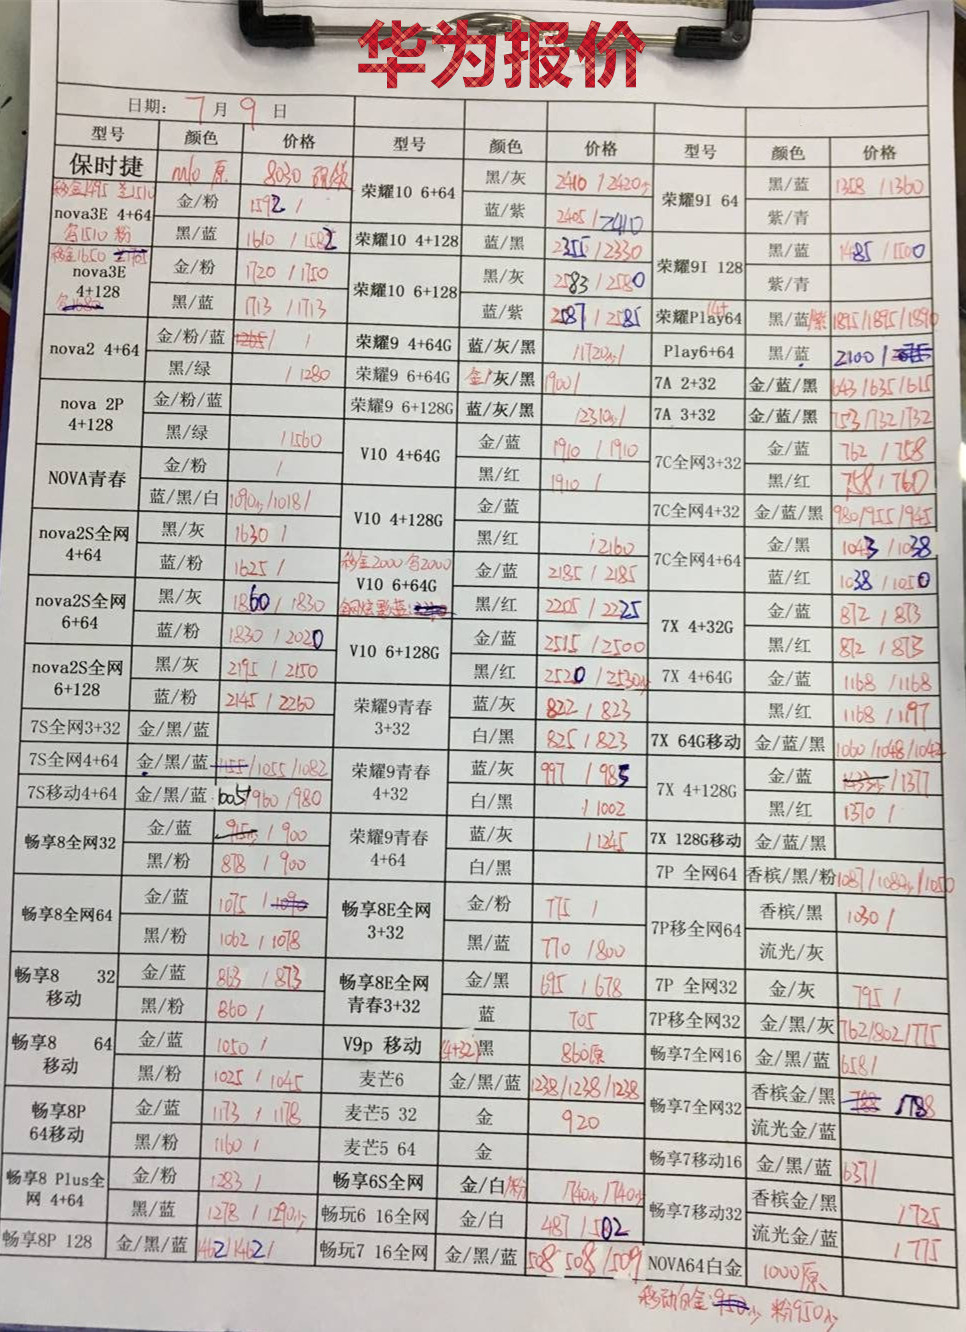 华为报价
日期: 7 月 9 日
型号 颜色 价格 型号 颜色 价格 型号 颜色 价格
保时捷 原 8030
nova3E 4+64 金/粉 1592 /
黑/蓝 1610 / 1582
nova3E 4+128 金/粉 1720 / 1750
黑/蓝 1713 / 1713
nova2 4+64 金/粉/蓝 1265 / /
黑/绿 / 1280
nova 2P 4+128 金/粉/蓝
黑/绿 / 1560
NOVA青春 金/粉 /
蓝/黑/白 /1018/
nova2S全网 4+64 黑/灰 1630 /
蓝/粉 1625 /
nova2S全网 6+64 黑/灰 1860 / 1830
蓝/粉 1830 / 2020
nova2S全网 6+128 黑/灰 2195 / 2150
蓝/粉 2145 / 2260
7S全网3+32 金/黑/蓝
7S全网4+64 金/黑/蓝 /1055/1082
7S移动4+64 金/黑/蓝 1005/960/980
畅享8全网32 金/蓝 915 / 900
黑/粉 878 / 900
畅享8全网64 金/蓝 1075 / 1090
黑/粉 1062 / 1078
畅享8 32 移动 金/蓝 863 / 873
黑/粉 860 /
畅享8 64 移动 金/蓝 1050 /
黑/粉 1025 / 1045
畅享8P 64移动 金/蓝 1173 / 1178
黑/粉 1160 /
畅享8 Plus全网 4+64 金/粉 1283 /
黑/蓝 1278 / 1290
畅享8P 128 金/黑/蓝 1462/1462/
荣耀10 6+64 黑/灰 2410 / 2420
蓝/紫 2405 / 2410
荣耀10 4+128 蓝/黑 2355 / 2330
荣耀10 6+128 黑/灰 2583 / 2580
蓝/紫 2587 / 2585
荣耀9 4+64G 蓝/灰/黑 /1720/
荣耀9 6+64G 金/灰/黑 1900/
荣耀9 6+128G 蓝/灰/黑 /2310/
V10 4+64G 金/蓝 1910 / 1910
黑/红 1910 /
V10 4+128G 金/蓝
黑/红 / 2160
移金2000 2000
V10 6+64G 金/蓝 2185 / 2185
黑/红 2205 / 2225
V10 6+128G 金/蓝 2515 / 2500
黑/红 2520 / 2530
荣耀9青春 3+32 蓝/灰 822 / 823
白/黑 825 / 823
荣耀9青春 4+32 蓝/灰 997 / 985
白/黑 / 1002
荣耀9青春 4+64 蓝/灰 / 1245
白/黑
畅享8E全网 3+32 金/粉 775 /
黑/蓝 770 / 800
畅享8E全网 青春3+32 金/黑 695 / 678
蓝 705
V9p 移动 (4+32) 黑 860原
麦芒6 金/黑/蓝 1238/1238/1238
麦芒5 32 金 920
麦芒5 64 金
畅享6S全网 金/白/粉 /740/740
畅玩6 16全网 金/白 487 / 502
畅玩7 16全网 金/黑/蓝 508 508 / 509
荣耀9I 64 黑/蓝 1358 / 1360
紫/青
荣耀9I 128 黑/蓝 1485 / 1500
紫/青
荣耀Play64 黑/蓝/紫 1895/1895/1890
Play6+64 黑/蓝 2100 /
7A 2+32 金/蓝/黑 643/635/615
7A 3+32 金/蓝/黑 753/732/732
7C全网3+32 金/蓝 762 / 758
黑/红 758 / 760
7C全网4+32 金/蓝/黑 980/955/945
7C全网4+64 金/黑 1043 / 1038
蓝/红 1038 / 1050
7X 4+32G 金/蓝 872 / 873
黑/红 872 / 873
7X 4+64G 金/蓝 1168 / 1168
黑/红 1168 / 1197
7X 64G移动 金/蓝/黑 1060/1048/1042
7X 4+128G 金/蓝 / 1377
黑/红 1370 /
7X 128G移动 金/蓝/黑
7P 全网64 香槟/黑/粉 1087/1082/1050
7P移全网64 香槟/黑 1030 /
流光/灰
7P 全网32 金/灰 795 /
7P移全网32 金/黑/灰 762/802/775
畅享7全网16 金/黑/蓝 658/
畅享7全网32 香槟金/黑 788 /788
流光金/蓝
畅享7移动16 金/黑/蓝 637/
畅享7移动32 香槟金/黑 / 725
流光金/蓝 / 775
NOVA64白金 1000原
移动白金:950 粉950